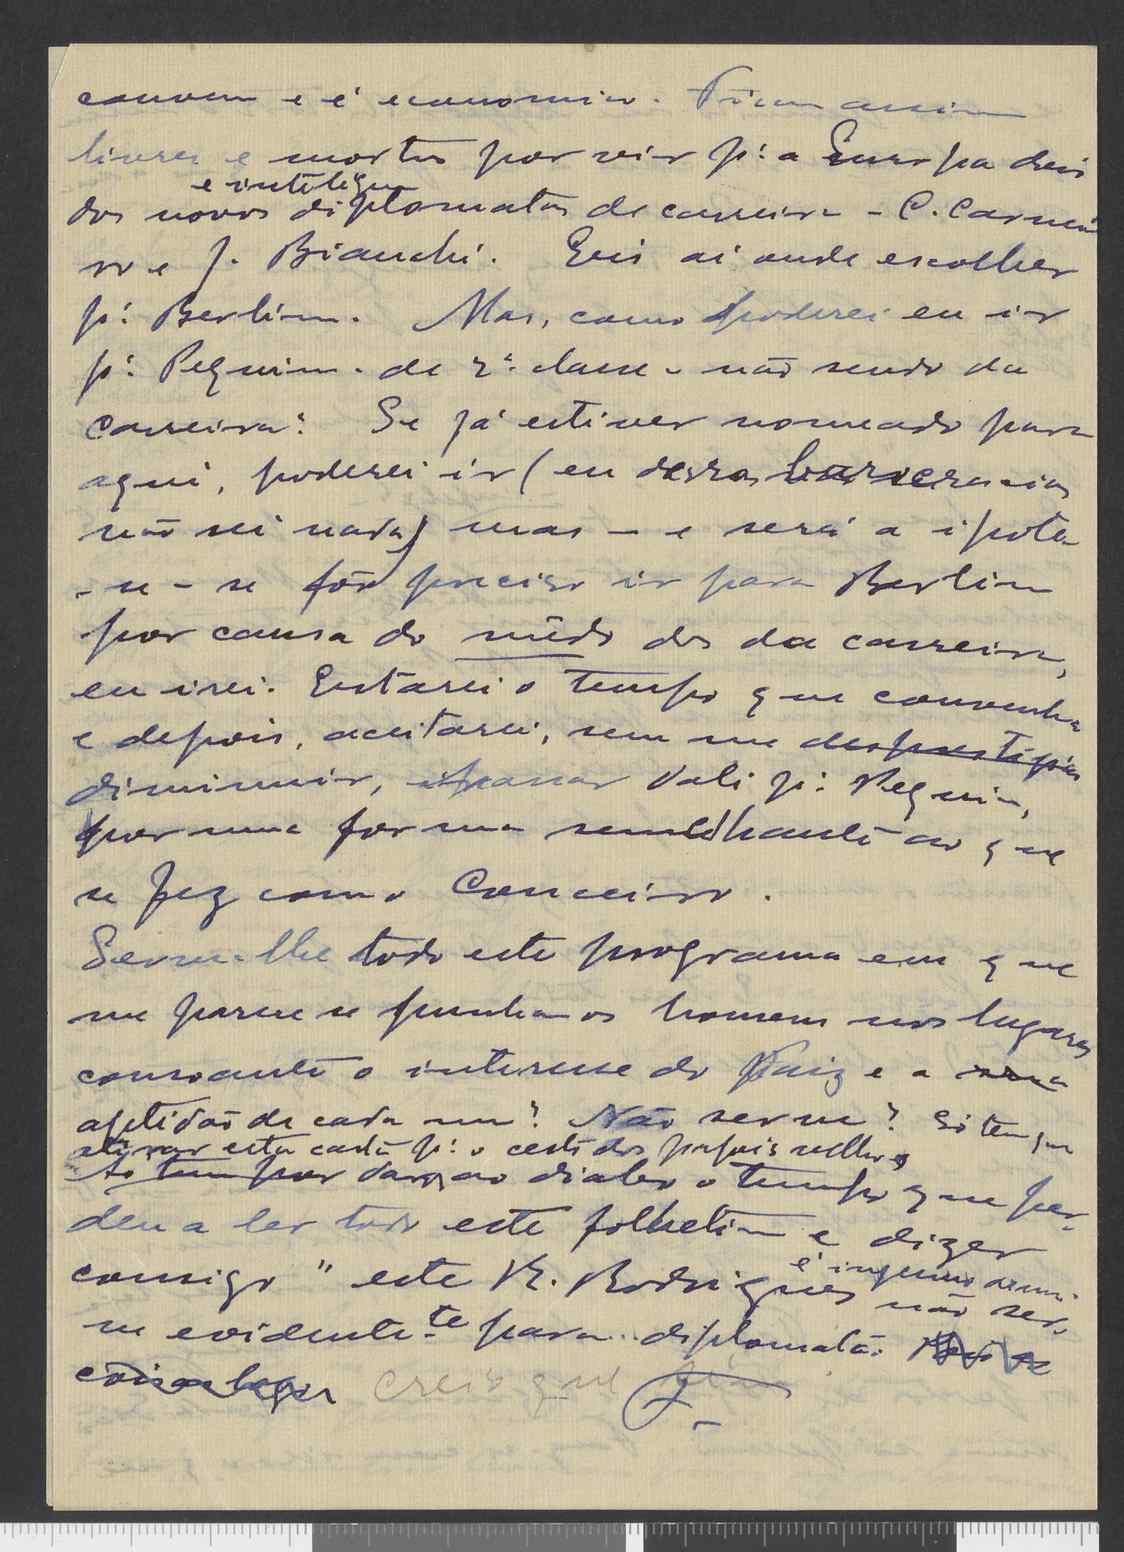 convem e é economico. Ficam assim
livres e mortos por vir p.ª a Europa dois
e inteligen
dos novos diplomatas de carreira - C. Carnei
ro e J. Bianchi. Eis ai onde escolher
p.ª Berlim. Mas, como poderei eu ir
p.ª Pequim - de 2.ª classe - não sendo da
carreira? Se já estiver nomeado para
aqui, poderei ir (eu dessas burocracias
não sei nada) mas - e será a ipote
-se - se fôr preciso ir para Berlim
por causa do mêdo dos da carreira,
eu irei. Estarei o tempo que convenha
e depois, aceitarei, sem me desprestigiar
diminuir, passar dali p.ª Pequim,
por uma forma semelhante ao que
se fez com o Conceiro.
Serve-lhe todo este programa em que
me parece se punham os homens nos lugares
consoante o interesse do Paiz e a sua
aptidão de cada um? Não serve? Só tem que
atirar esta carta p.ª o cesto dos papeis velhos
Só tem por dar ao diabo o tempo que per-
deu a ler todo este folhetim e dizer
é ingenuo demais
comsigo "este R. Rodrigues não ser-
ve evidente.te para diplomata.
creio que